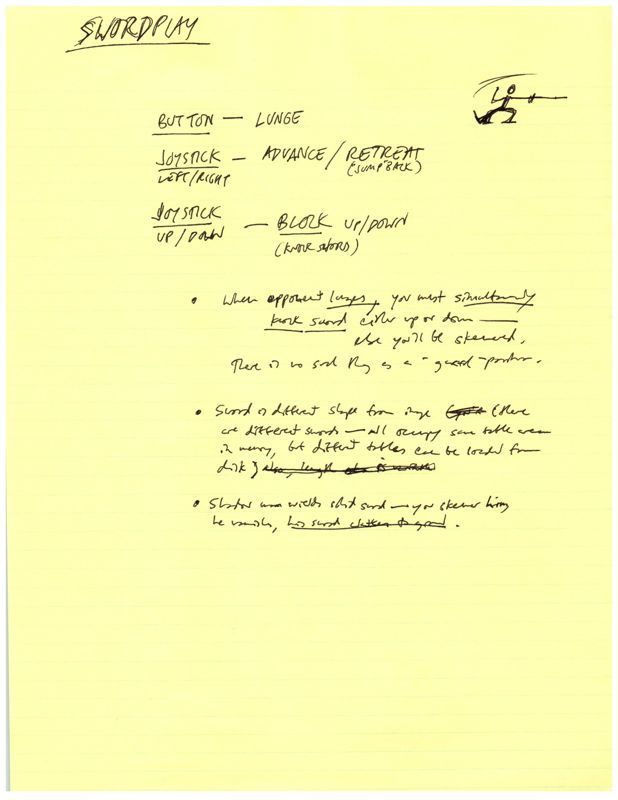 SWORDPLAY
BUTTON — LUNGE
JOYSTICK — ADVANCE / RETREAT
LEFT/RIGHT (JUMP BACK)
JOYSTICK — BLOCK UP/DOWN
UP/DOWN (KNOCK SWORD)
• When opponent lunges, you must simultaneously
knock sword either up or down —
else you'll be skewered.
There is no such thing as a "guard" position.
• Sword is different shape from image (there
are different swords — all occupy same table area
in memory, but different tables can be loaded from
disk) also, length
• Shadow man wields shit sword — you skewer him,
he vanishes, his sword clatters to ground.